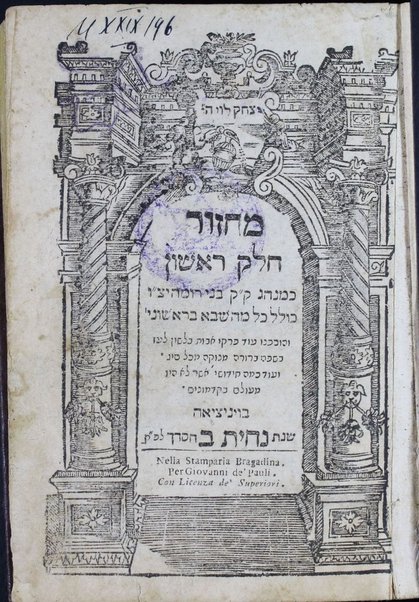 M XXIX 196
יצחק לוי ה״
מחזור
חלק ראשון
כמנהג ק״ק בני רומה יצ״ו
כולל כל מה שבא בראשוני׳
והוספנו עוד פרקי אבות בלשון לעז
בשפה ברורה מנוקה מכל סיג׳
ועוד כמה חידושי׳ אשר לא היו
מעולם בקדמונים׳
בויניציאה
שנת נחית ב חסדך לפ״ק
Nella Stamparia Bragadina.
Per Giovanni de' Pauli.
Con Licenza de' Superiori.